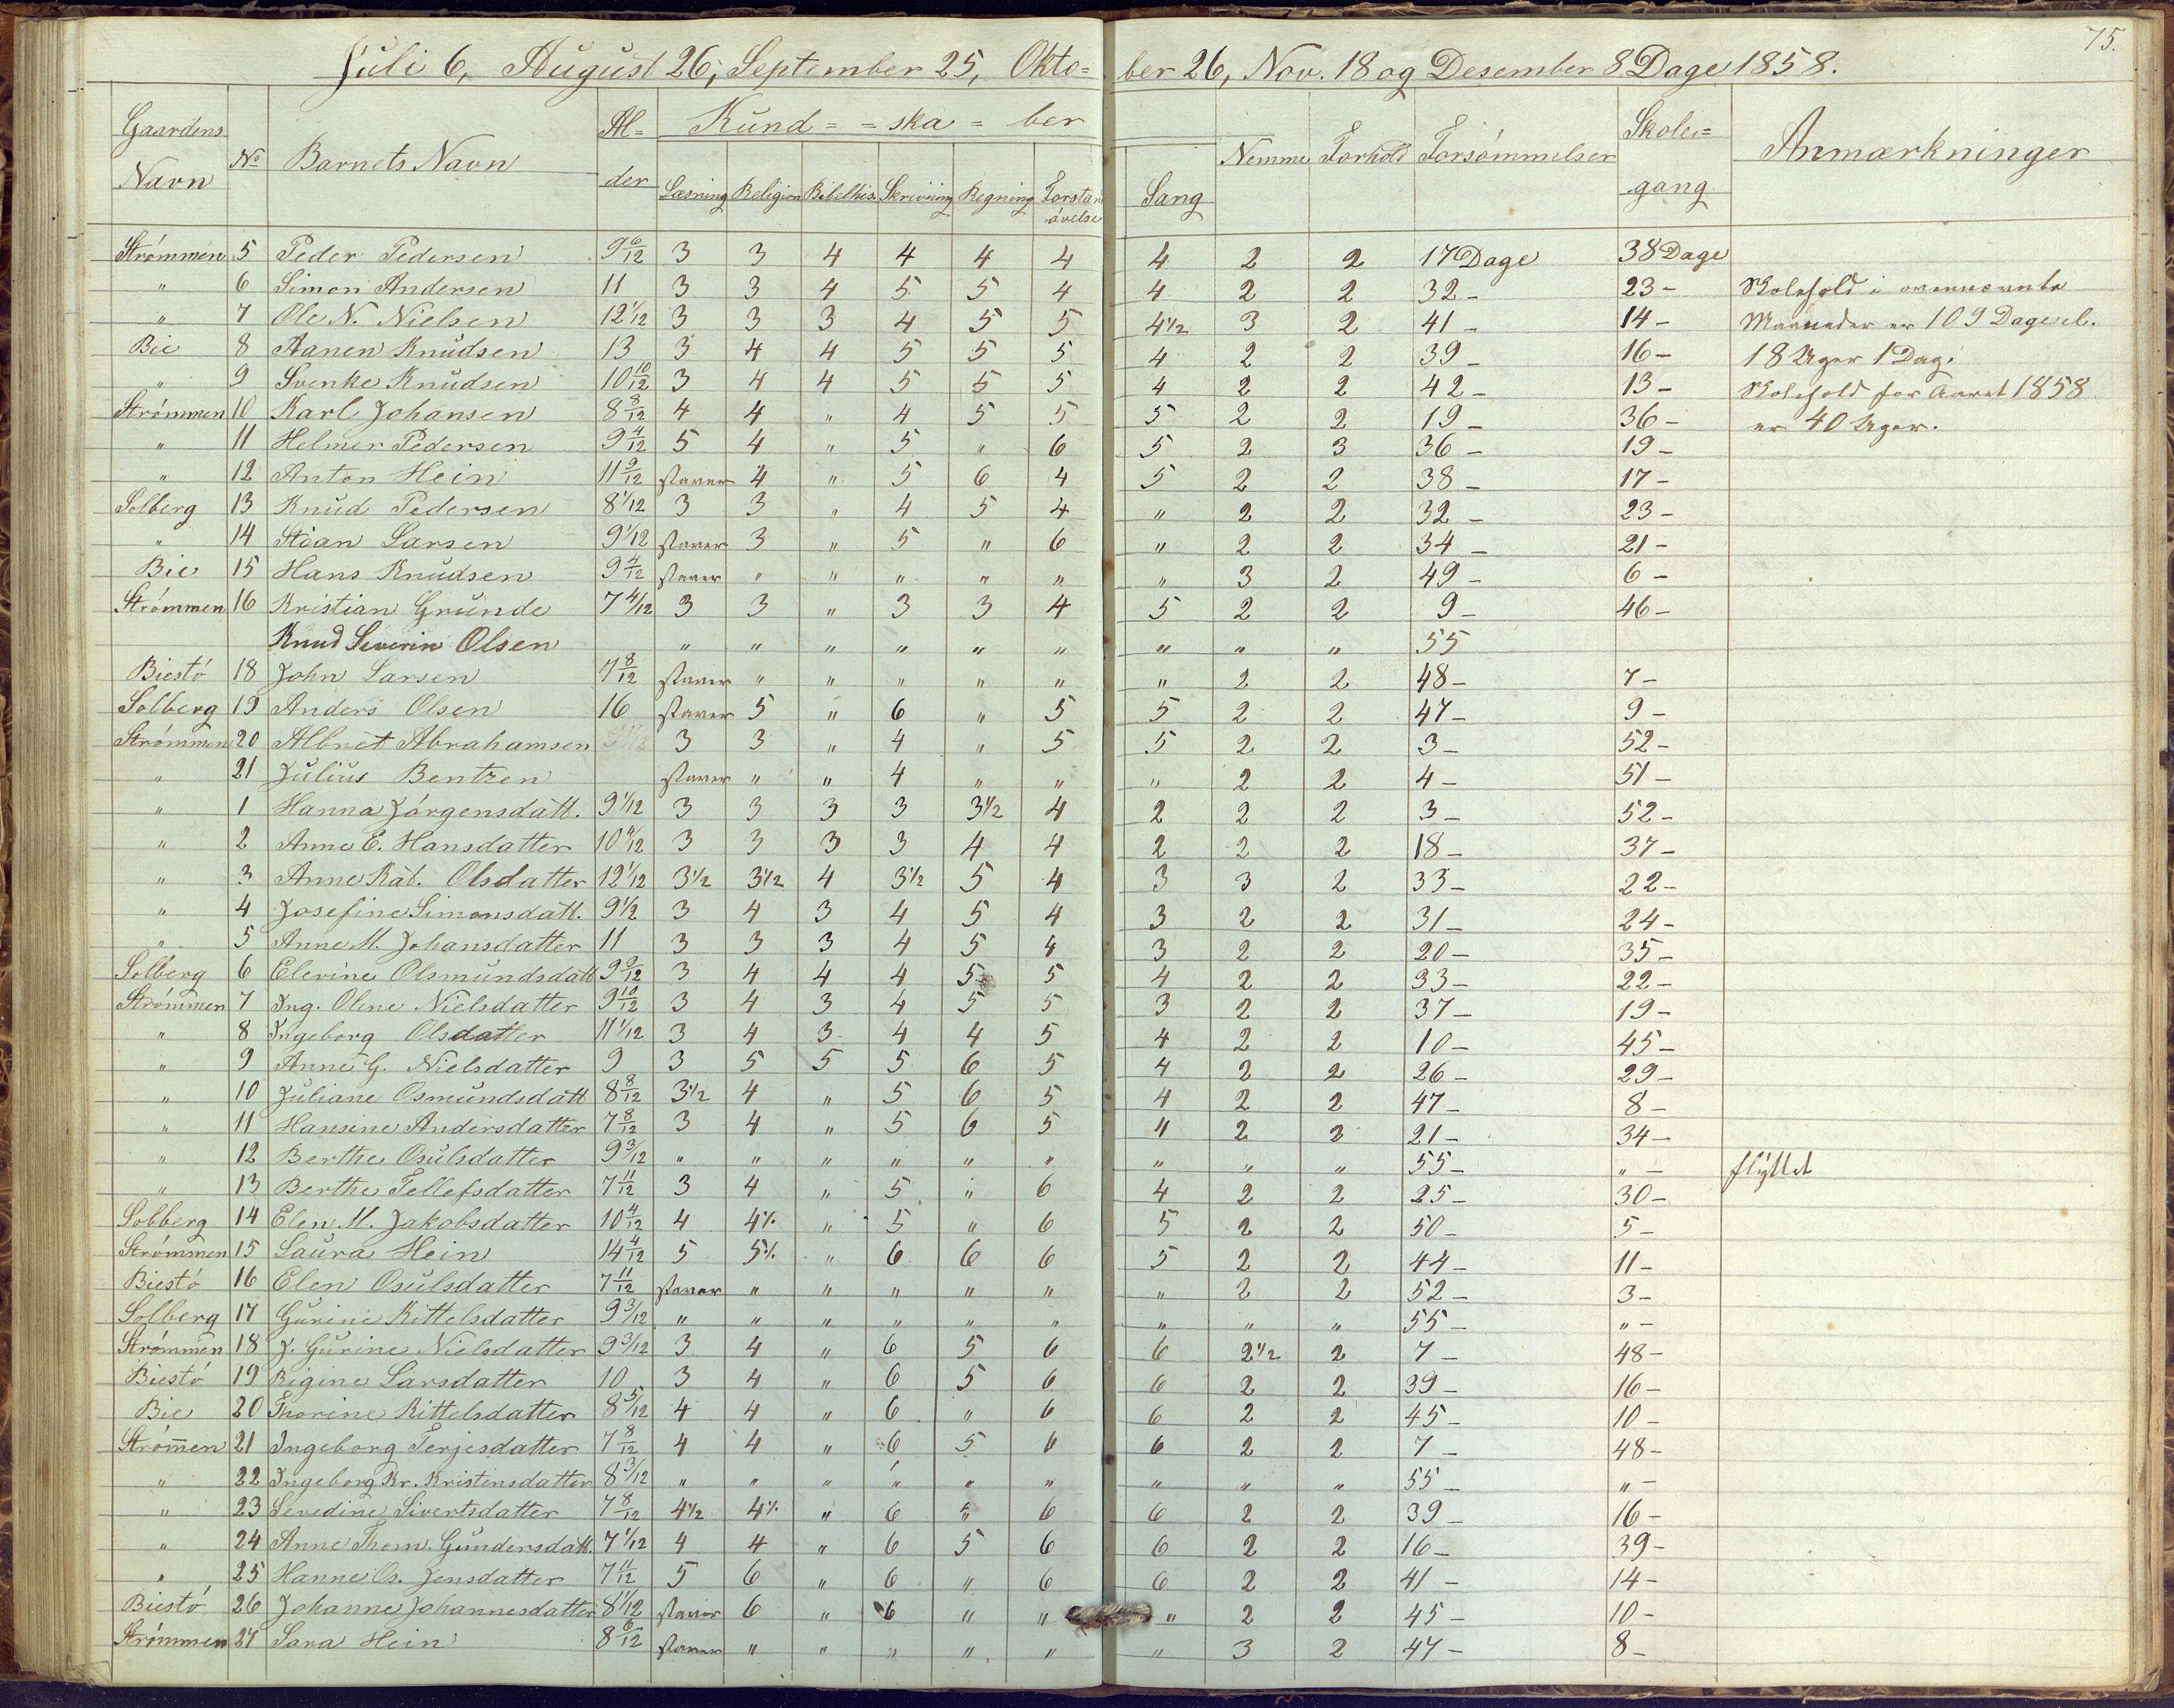 75.
Juli 6, August 26, September 25, Okto= ber 26, Nov. 18 og Desember 8 Dage 1858.
Gaardens Navn | No | Barnets Navn | Al= der | Kund= =ska= ber | Nemme | Forhold | Forsømmelser | Skole= gang | Anmærkninger
Læsning | Religion | Bibelhis. | Skrivning | Regning | Forstan øvelse | Sang
Strømmen 5 Peder Pedersen 9 6/12 3 3 4 4 4 4 4 2 2 17 Dage 38 Dage
" 6 Simon Andersen 11 3 3 4 5 5 4 4 2 2 32 - 23 - Skolehold i ovennævnte
" 7 Ole N. Nielsen 12 1/12 3 3 3 4 5 5 4½ 3 2 41 - 14 - Maaneder er 109 Dage el.
Bie 8 Aanen Knudsen 13 3 4 4 5 5 5 4 2 2 39 - 16 - 18 Uger 1 Dag.
" 9 Svenke Knudsen 10 10/12 3 4 4 5 5 5 4 2 2 42 - 13 - Skolehold for Aaret 1858
Strømmen 10 Karl Johansen 8 8/12 4 4 " 4 5 5 5 2 2 19 - 36 - er 40 Uger.
" 11 Helmer Pedersen 9 4/12 5 4 " 5 " 6 5 2 3 36 - 19 -
" 12 Anton Hein 11 9/12 staver 4 " 5 6 4 5 2 2 38 - 17 -
Solberg 13 Knud Pedersen 8 1/12 3 3 " 4 5 4 " 2 2 32 - 23 -
" 14 Stian Larsen 9 1/12 staver 3 " 5 " 6 " 2 2 34 - 21 -
Bie 15 Hans Knudsen 9 4/12 staver " " " " " " 3 2 49 - 6 -
Strømmen 16 Kristian Grunde 7 4/12 3 3 " 3 3 4 5 2 2 9 - 46 -
Knud Severin Olsen " " " " " " " " " 55
Biestø 18 John Larsen 7 8/12 staver " " " " " " 2 2 48 - 7 -
Solberg 19 Anders Olsen 16 staver 5 " 6 " 5 5 2 2 47 - 9 -
Strømmen 20 Albret Abrahamsen 3 3 " 4 " 5 5 2 2 3 - 52 -
" 21 Julius Bentzen staver " " 4 " " " 2 2 4 - 51 -
" 1 Hanna Jørgensdatt. 9 1/12 3 3 3 3 3½ 4 2 2 2 3 - 52 -
" 2 Anne E. Hansdatter 10 4/12 3 3 3 3 4 4 2 2 2 18 - 37 -
" 3 Anne Kat. Olsdatter 12 1/12 3½ 3½ 4 3½ 5 4 3 3 2 33 - 22 -
" 4 Josefine Simonsdatt. 9 1/2 3 4 3 4 5 4 3 2 2 31 - 24 -
" 5 Anne M. Johansdatter 11 3 3 3 4 5 4 3 2 2 20 - 35 -
Solberg 6 Elevine Olsmundsdatt 9 9/12 3 4 4 4 5 5 4 2 2 33 - 22 -
Strømmen 7 Ing. Oline Nielsdatter 9 10/12 3 4 3 4 5 5 3 2 2 37 - 19 -
" 8 Ingeborg Olsdatter 11 1/12 3 4 3 4 4 5 4 2 2 10 - 45 -
" 9 Anne G. Nielsdatter 9 3 5 5 5 6 5 4 2 2 26 - 29 -
" 10 Juliane Osmundsdatt 8 8/12 3½ 4 " 5 6 5 4 2 2 47 - 8 -
" 11 Hansine Andersdatter 7 8/12 3 4 " 5 6 5 4 2 2 21 - 34 -
" 12 Berthe Osulsdatter 9 3/12 " " " " " " " " " 55 - " - flyttet
" 13 Berthe Tellefsdatter 7 11/12 3 4 " 5 " 6 4 2 2 25 - 30 -
Solberg 14 Elen M. Jakobsdatter 10 4/12 4 4½ " 5 " 6 5 2 2 50 - 5 -
Strømmen 15 Laura Hein 14 4/12 5 5½ " 6 6 6 5 2 2 44 - 11 -
Biestø 16 Elen Osulsdatter 7 11/12 staver " " " " " " 2 2 52 - 3 -
Solberg 17 Gurine Kittelsdatter 9 3/12 " " " " " " " " " 55 - " -
Strømmen 18 J. Gurine Nielsdatter 9 3/12 3 4 " 6 5 6 6 2½ 2 7 - 48 -
Biestø 19 Rigine Larsdatter 10 3 4 " 6 5 6 6 2 2 39 - 16 -
Bie 20 Thorine Kittelsdatter 8 5/12 4 4 " 6 " 6 6 2 2 45 - 10 -
Strøm̅en 21 Ingeborg Terjesdatter 7 8/12 4 4 " 6 5 6 6 2 2 7 - 48 -
" 22 Ingeborg Kr. Kristensdatter 8 3/12 " " " " " " " " " 55 - " -
" 23 Sevedine Sivertsdatter 7 8/12 4½ 4½ " 6 5 6 6 2 2 39 - 16 -
" 24 Anne Thom. Gundersdatt. 7 1/12 4 4 " 6 5 6 6 2 2 16 - 39 -
" 25 Hanne Os. Jensdatter 7 11/12 5 6 " 6 " 6 6 2 2 41 - 14 -
Biestø 26 Johanne Johannesdatter 8 1/12 staver 6 " 6 " " " 2 2 45 - 10 -
Strømmen 27 Sara Hein 8 6/12 staver " " " " " " 3 2 47 - 8 -